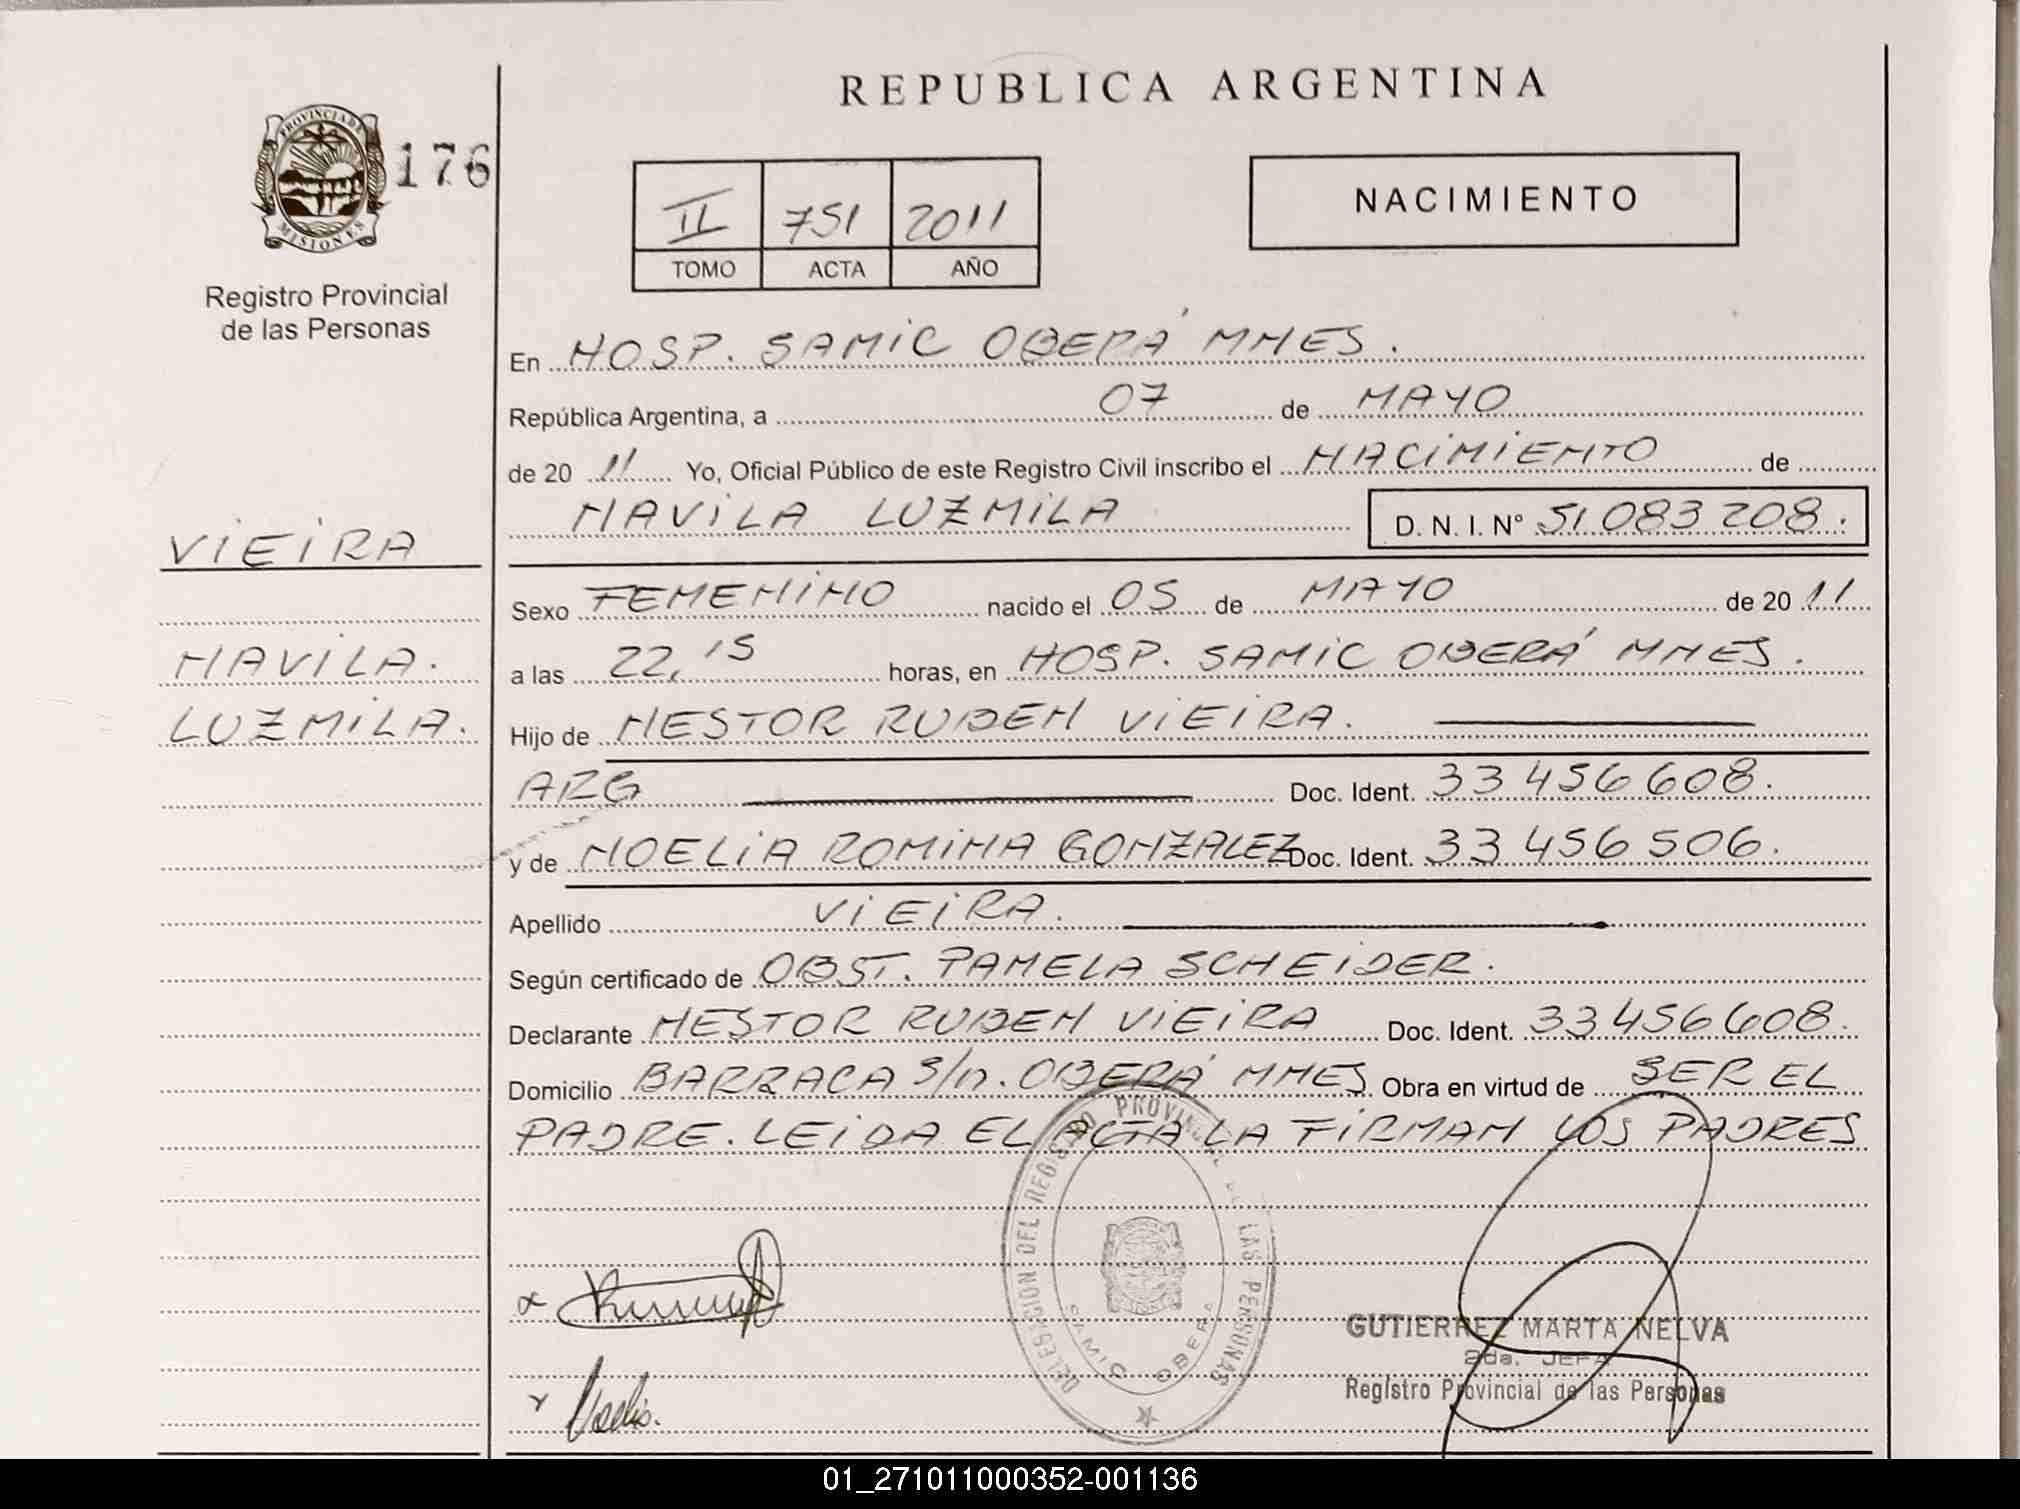 REPUBLICA ARGENTINA
PROVINCIA DE
MISIONES
176
Registro Provincial
de las Personas
II 751 2011
TOMO ACTA AÑO
NACIMIENTO
En HOSP. SAMIC OBERÁ MNES.
República Argentina, a 07 de MAYO
de 20 11 Yo, Oficial Público de este Registro Civil inscribo el NACIMIENTO de
NAVILA LUZMILA D. N. I. N° 51.083.208.
VIEIRA
NAVILA.
LUZMILA.
Sexo FEMENINO nacido el 05 de MAYO de 20 11
a las 22,15 horas, en HOSP. SAMIC OBERÁ MNES.
Hijo de NESTOR RUBEN VIEIRA.
ARG Doc. Ident. 33 456 608.
y de NOELIA ROMINA GONZALEZ Doc. Ident. 33 456 506.
Apellido VIEIRA.
Según certificado de OBST. PAMELA SCHEIDER.
Declarante NESTOR RUBEN VIEIRA Doc. Ident. 33.456 608.
Domicilio BARRACA S/n. OBERÁ MNES Obra en virtud de SER EL
PADRE. LEIDA EL ACTA LA FIRMAN LOS PADRES
DELEGACION DEL REGISTRO PROVINCIAL DE LAS PERSONAS
SAMIC OBERA
Noelia.
GUTIERREZ MARTA NELVA
2da. JEFA
Registro Provincial de las Personas
01_271011000352-001136